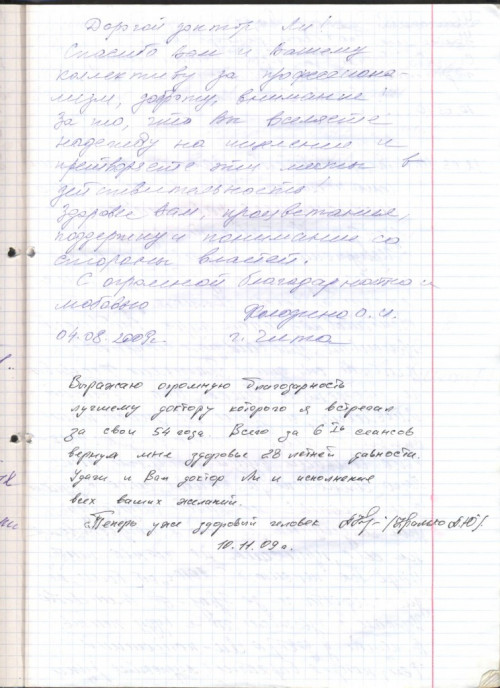 Дорогой доктор Ли!
Спасибо вам и Вашему
коллективу за профессиона-
лизм, доброту, внимание!
За то, что Вы вселяете
надежду на исцеление и
претворяете эти мечты в
действительность!
Здоровья Вам, процветания,
поддержку и понимания со
стороны властей.
С огромной благодарностью и
любовью О.И.
04.08.2009г. г. Чита
Выражаю огромную благодарность
лучшему доктору которого я встречал
за свои 54 года. Всего за 6 сеансов
вернула мне здоровье 28 летней давности.
Удачи и Вам доктор Ли и исполнение
всех ваших желаний.
Теперь уже здоровый человек
10.11.09г.